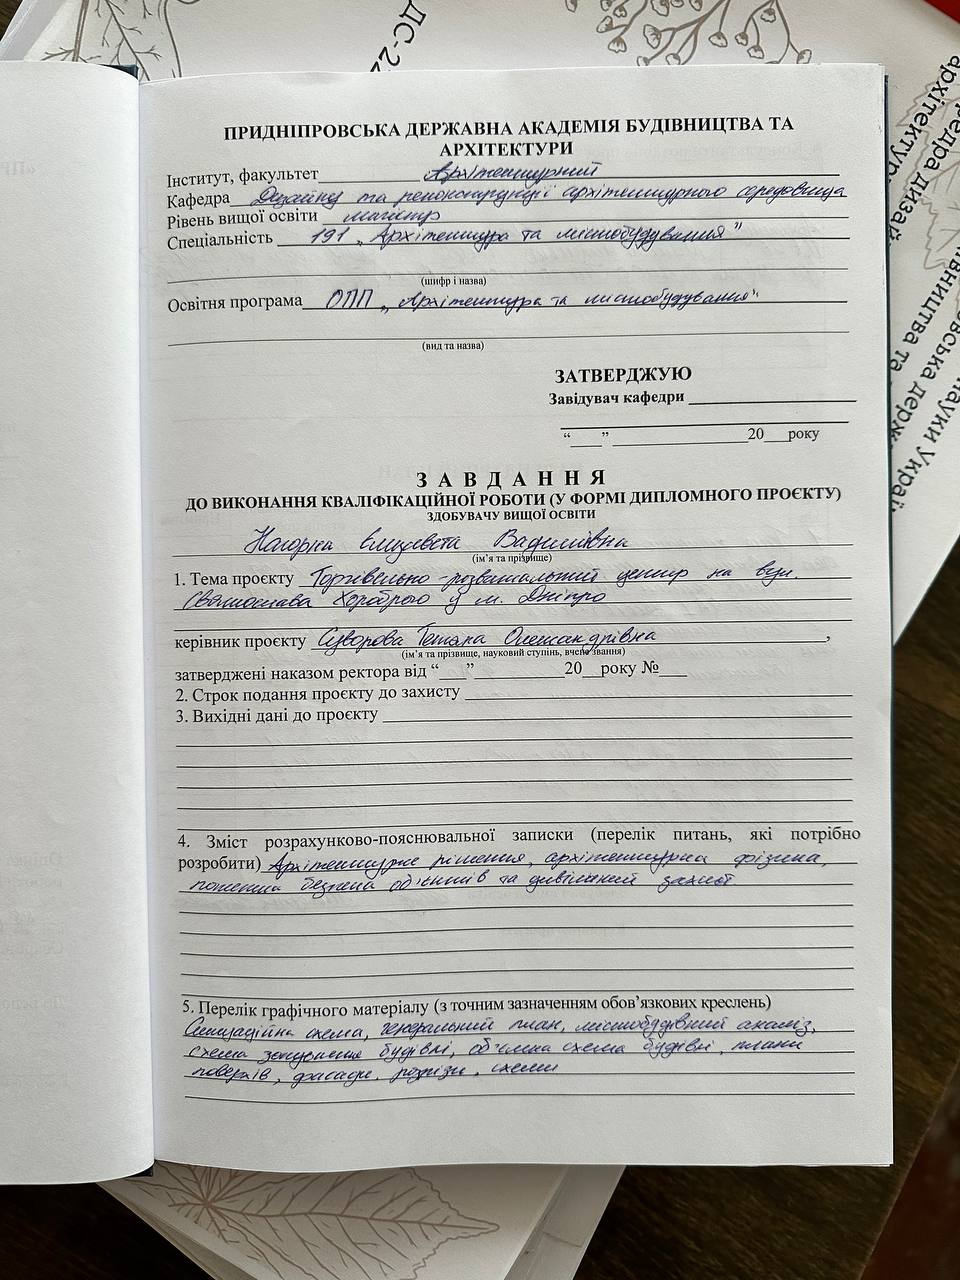 ПРИДНІПРОВСЬКА ДЕРЖАВНА АКАДЕМІЯ БУДІВНИЦТВА ТА
АРХІТЕКТУРИ
Інститут, факультет Архітектурний
Кафедра Дизайну та реконструкції архітектурного середовища
Рівень вищої освіти магістр
Спеціальність 191 „Архітектура та містобудування"
(шифр і назва)
Освітня програма ОПП „Архітектура та містобудування"
(вид та назва)
ЗАТВЕРДЖУЮ
Завідувач кафедри ____________
“____” ____________ 20___року
З А В Д А Н Н Я
ДО ВИКОНАННЯ КВАЛІФІКАЦІЙНОЇ РОБОТИ (У ФОРМІ ДИПЛОМНОГО ПРОЄКТУ)
ЗДОБУВАЧУ ВИЩОЇ ОСВІТИ
Нагорна Єлизавета Вадимівна
(ім’я та прізвище)
1. Тема проєкту Торгівельно-розважальний центр на вул.
Святослава Хороброго у м. Дніпро
керівник проєкту Суворова Тетяна Олександрівна,
(ім’я та прізвище, науковий ступінь, вчене звання)
затверджені наказом ректора від “___”__________20__року №___
2. Строк подання проєкту до захисту
3. Вихідні дані до проєкту
4. Зміст розрахунково-пояснювальної записки (перелік питань, які потрібно
розробити) Архітектурне рішення, архітектурна фізика,
пожежна безпека об'єктів та цивільний захист
5. Перелік графічного матеріалу (з точним зазначенням обов’язкових креслень)
Ситуаційна схема, генеральний план, містобудівний аналіз,
схема озеленення будівлі, об'ємна схема будівлі, плани
поверхів, фасади, розрізи, схеми
ДС-2